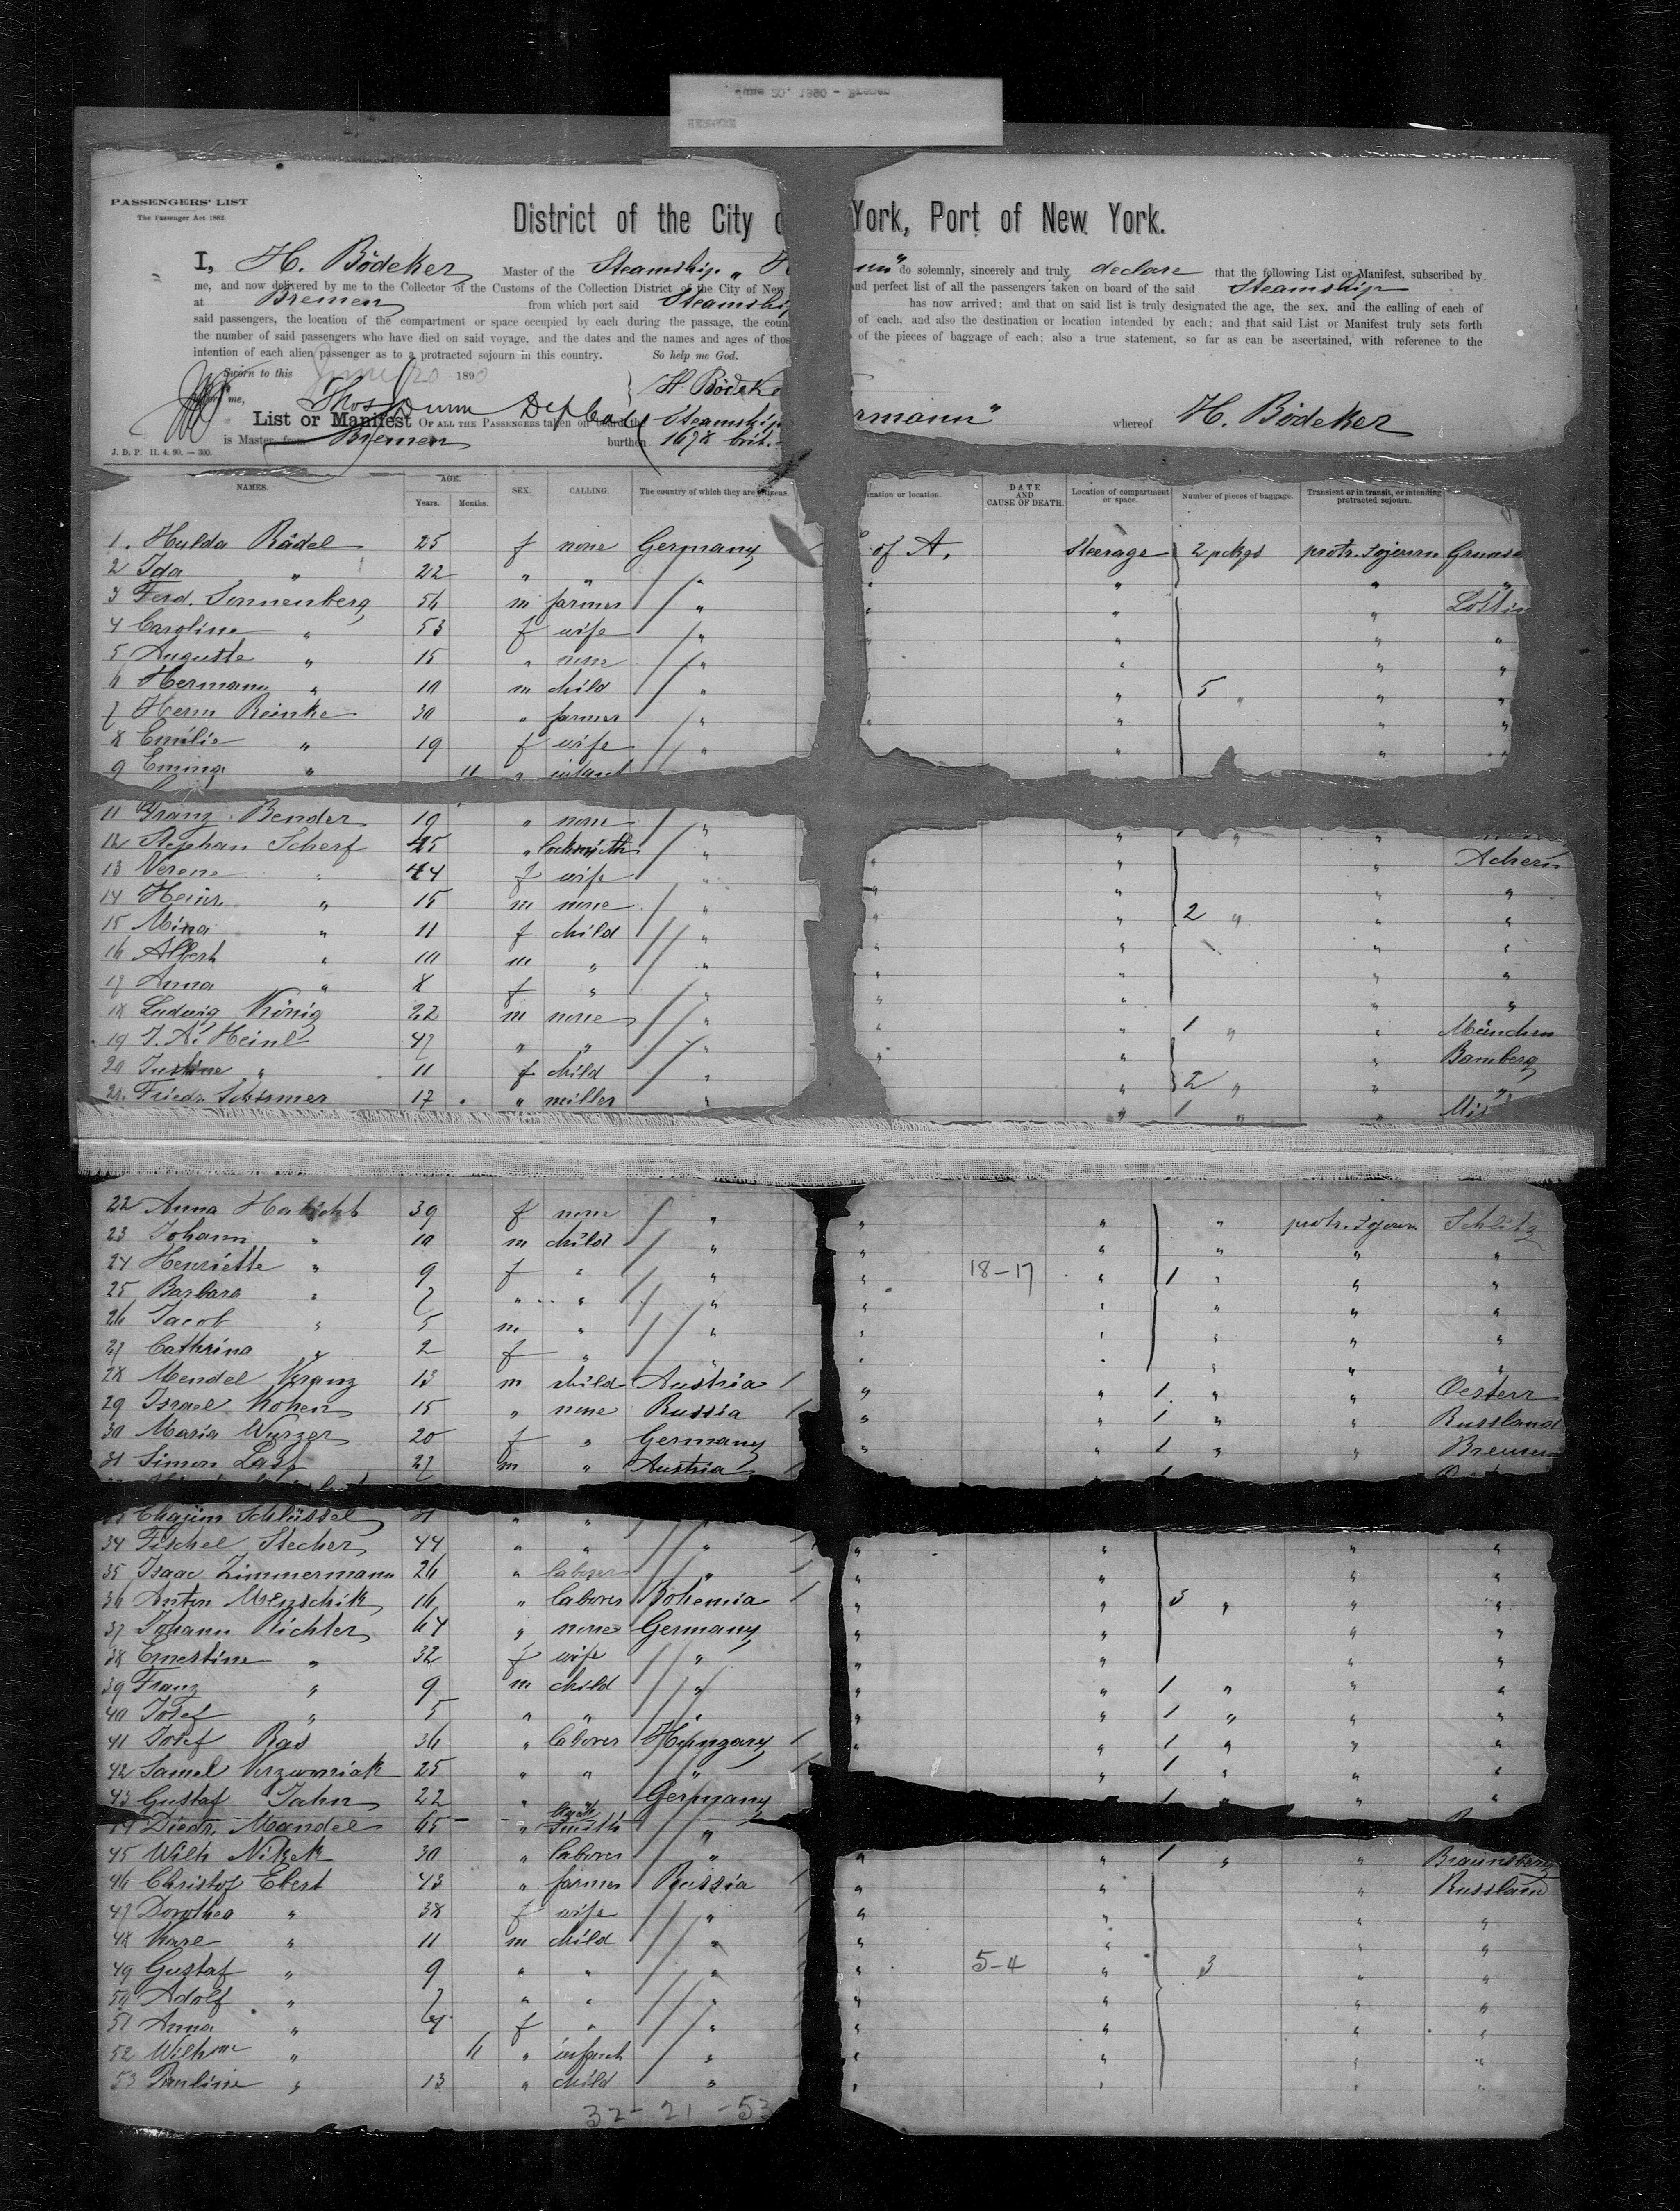 June 20, 1890 - Bremen
HERMANN
PASSENGERS' LIST
The Passenger Act 1882.
District of the City o York, Port of New York.
I, H. Bödeker Master of the Steamship „ H nn" do solemnly, sincerely and truly declare that the following List or Manifest, subscribed by
me, and now delivered by me to the Collector of the Customs of the Collection District of the City of New and perfect list of all the passengers taken on board of the said Steamship
at Bremen from which port said Steamship has now arrived; and that on said list is truly designated the age, the sex, and the calling of each of
said passengers, the location of the compartment or space occupied by each during the passage, the coun of each, and also the destination or location intended by each; and that said List or Manifest truly sets forth
the number of said passengers who have died on said voyage, and the dates and the names and ages of thos of the pieces of baggage of each; also a true statement, so far as can be ascertained, with reference to the
intention of each alien passenger as to a protracted sojourn in this country. So help me God.
Sworn to this June 20 1890 H. Bödeke
me, Thos Dunn Dep
List or Manifest OF ALL THE PASSENGERS taken on board the Steamship rmann" whereof H. Bödeker
is Master, from Bremen burthen 1678 brit.
J. D. P. 11. 4. 90. — 300.
NAMES. AGE. Years. Months. SEX. CALLING. The country of which they are citizens. ination or location. DATE AND CAUSE OF DEATH. Location of compartment or space. Number of pieces of baggage. Transient or in transit, or intending protracted sojourn.
1. Hulda Rädel 25 f none Germany of A. Steerage 2 pckgs protr. sojourn
2 Ida " 22 " " " " "
3 Ferd. Sonnenberg 56 m farmer " " "
4 Caroline " 53 f wife " " " "
5 Auguste " 15 " none " " " "
6 Hermann " 10 m child " " 5 " " "
7 Herm Reinke 30 " farmer " " " "
8 Emilie " 19 f wife " " " "
9 Emma " 11 " infant
11 Franz Bender 19 " none " " 1 " "
12 Stephan Scherf 45 " locksmith " " " " Achern
13 Verena " 44 f wife " " " " "
14 Heinr. " 15 m none " " " 2 " " "
15 Mina " 11 f child " " " " "
16 Albert " 10 m " " " " " "
17 Anna " 8 f " " " " " "
18 Ludwig König 22 m none " " " 1 " " München
19 J. A. Heinl 47 " " " " " " Bamberg
20 Justine " 11 f child " " 2 " " "
21. Friedr. 17 " miller " " 1 " "
22 Anna Habicht 39 f none " " " " protr. sojourn Schlitz
23 Johann " 10 m child " " " " " "
24 Henriette " 9 f " " " 18-17 " 1 " " "
25 Barbara " 7 " " " " " " " "
26 Jacob " 5 m " " " " " " "
27 Cathrina " 2 f " " " " " " "
28 Mendel Kranz 13 m child Austria " " 1 " " Oesterr
29 Israel Kohen 15 " none Russia " " 1 " " Russland
30 Maria Wurzer 20 f " Germany " " 1 " " Bremen
31 Simon 27 m " Austria
33 Chazim Schlüssel 21 " "
34 Fischel Stecher 44 " " " " " " "
35 Isaac Zimmermann 26 " laborer " " " " "
36 Anton Menschik 16 " laborer Bohemia " " 3 " " "
37 Johann Richter 64 " none Germany " " " "
38 Ernestine " 32 f wife " " " " "
39 Franz " 9 m child " " " 1 " " "
40 Josef " 5 " " " " " 1 " " "
41 Josef Ras 36 " laborer Hungary " " 1 " " "
42 Samel 25 " " " " " 1 " " "
43 Gustaf Jahn 22 " " Germany " " 1 " " "
44 Diedr. Mandel 65 " smith "
45 Wilh Nikek 30 " laborer " " 1 " " Braunsberg
46 Christof Ebert 43 " farmer Russia " " " Russland
47 Dorothea " 38 f wife " " " " "
48 Karl " 11 m child " " " " "
49 Gustaf " 9 " " " " 5-4 " 3 " "
50 Adolf " 7 " " " " " " "
51 Anna " 4 f " " " " " "
52 Wilhme " 6 " infant " " " " "
53 Pauline " 13 " child " " " " "
32-21-53